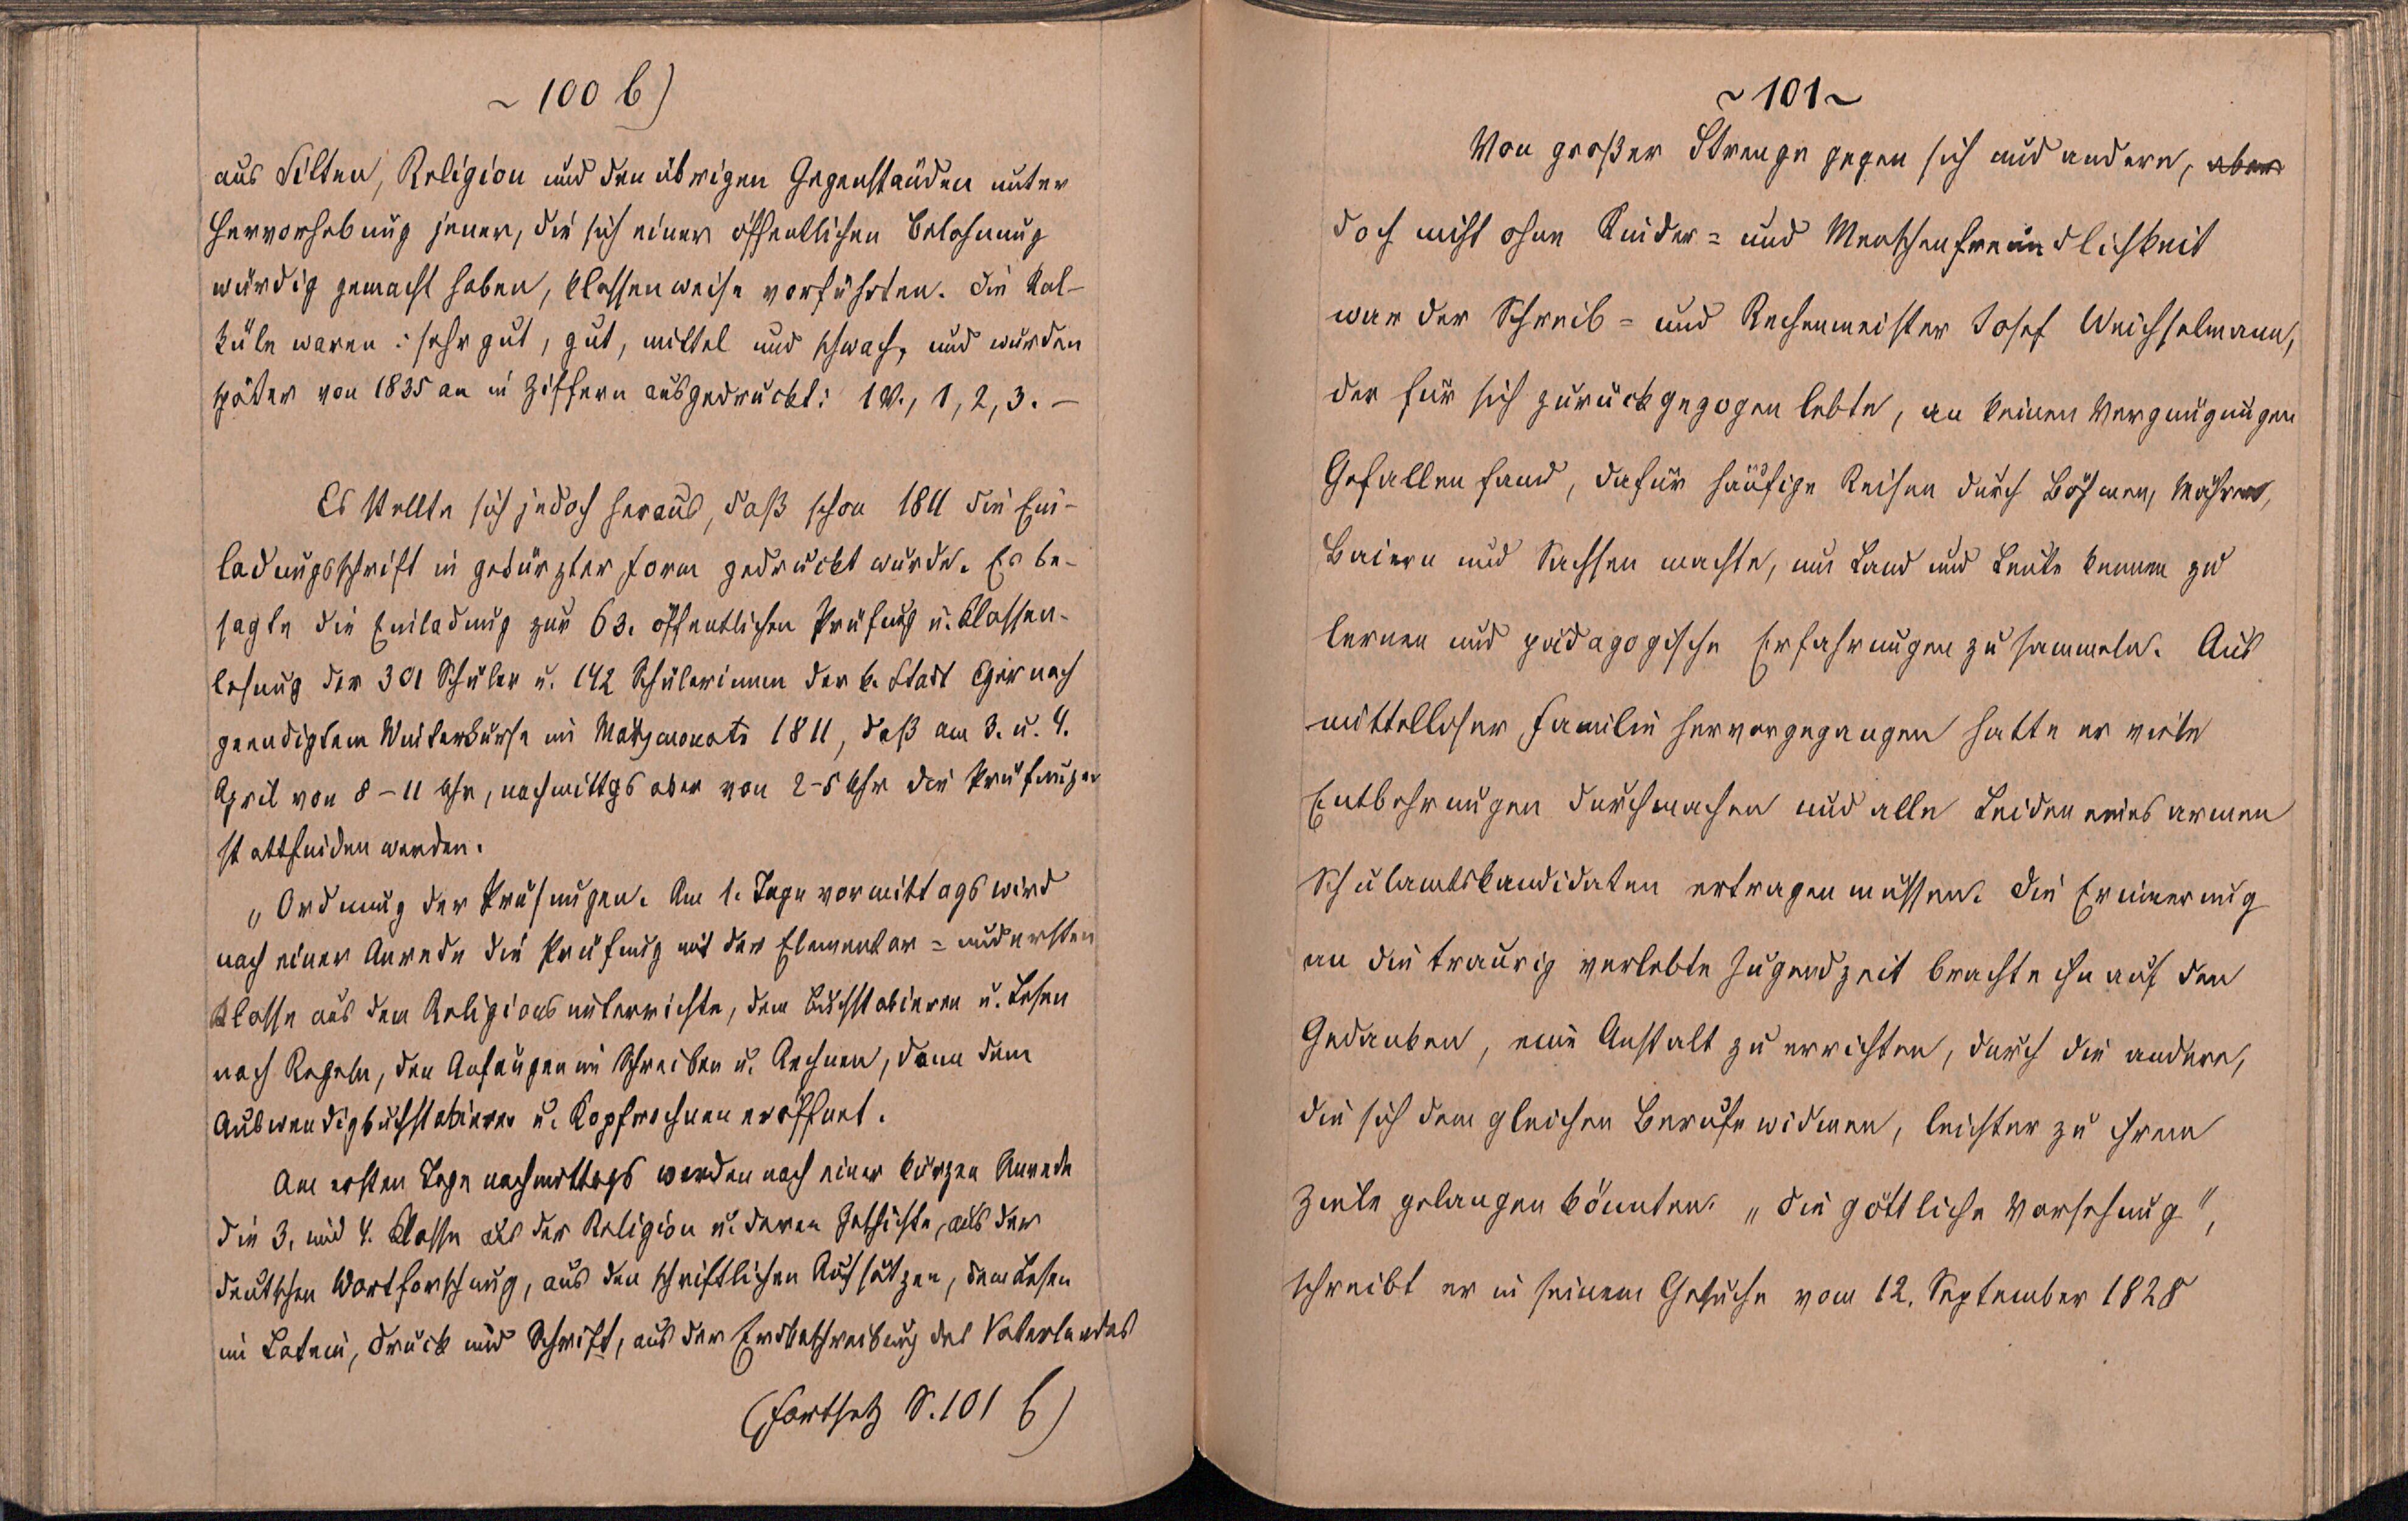 ~ 100 b)
aus Sitten, Religion und den übrigen Gegenständen unter
Hervorhebung jener, die sich einer öffentlichen Belohnung
würdig gemacht haben, klassenweise vorführten. Die Kal-
küle waren: sehr gut, gut, mittel und schwach, und wurden
später von 1835 an in Ziffern ausgedrückt: 1 V., 1, 2, 3. –
Es stellte sich jedoch heraus, daß schon 1811 die Ein-
ladungsschrift in gekürzter Form gedruckt wurde. Es be-
sagte die Einladung zur 63. öffentlichen Prüfung u. Klassen-
lesung der 301 Schüler u. 142 Schülerinnen der k. Stadt Eger nach
geendigtem Winterkurse im Märzmonate 1811, daß am 3. u. 4.
April von 8 – 11 Uhr, nachmittgs aber von 2–5 Uhr die Prüfungen
stattfinden werden.
„Ordnung der Prüfungen. Am 1. Tage vormittags wird
nach einer Anrede die Prüfung mit der Elementar= und ersten
Klasse aus dem Religionsunterrichte, dem Buchstabieren u. Lesen
nach Regeln, den Anfängen im Schreiben u. Rechnen, dann dem
Auswendigbuchstabieren u. Kopfrechnen eröffnet.
Am ersten Tage nachmittags werden nach einer kurzen Anrede
die 3. und 4. Klasse aus der Religion u. deren Geschichte, aus der
deutschen Wortforschung, aus den schriftlichen Aufsätzen, dem Lesen
im Latein, Druck und Schrift, aus der Erdbeschreibung des Vaterlandes
(Fortsetz S. 101 b)
~ 101 ~
Von großer Strenge gegen sich und andere, aber
doch nicht ohne Kinder= und Menschenfreundlichkeit
war der Schreib= und Rechenmeister Josef Weichselmann,
der für sich zurückgezogen lebte, an keinen Vergnügungen
Gefallen fand, dafür häufige Reisen durch Böhmen, Mähren,
Baiern und Sachsen machte, um Land und Leute kennen zu
lernen und pädagogische Erfahrungen zu sammeln. Aus
mittelloser Familie hervorgegangen hatte er viele
Entbehrungen durchmachen und alle Leiden eines armen
Schulamtskandidaten ertragen müssen. Die Erinnerung
an die traurig verlebte Jugendzeit brachte ihn auf den
Gedanken, eine Anstalt zu errichten, durch die andere,
die sich dem gleichen Berufe widmen, leichter zu ihrem
Ziele gelangen könnten. „Die göttliche Vorsehung“,
schreibt er in seinem Gesuche vom 12. September 1828